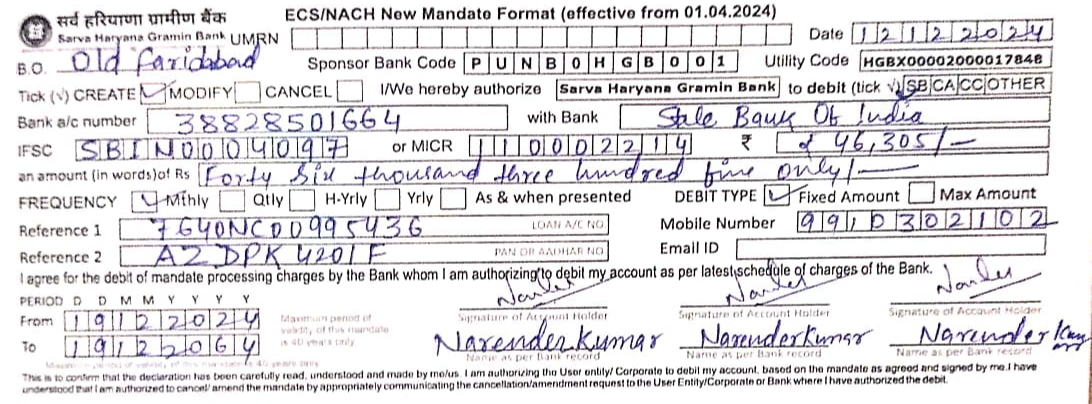 सर्व हरियाणा ग्रामीण बैंक ECS/NACH New Mandate Format (effective from 01.04.2024)
Sarva Haryana Gramin Bank UMRN Date 12122024
B.O. Old Faridabad Sponsor Bank Code PUNB0HGB001 Utility Code HGBX00002000017848
Tick (√) CREATE ✓ MODIFY CANCEL I/We hereby authorize Sarva Haryana Gramin Bank to debit (tick √) SB CA CC OTHER
Bank a/c number 38828501664 with Bank State Bank Of India
IFSC SBIN0004097 or MICR 110002214 ₹ ₹ 46,305/-
an amount (in words)of Rs Forty Six thousand three hundred five only/-
FREQUENCY ✓ Mthly Qtly H-Yrly Yrly As & when presented DEBIT TYPE ✓ Fixed Amount Max Amount
Reference 1 7640NC00995436 LOAN A/C NO Mobile Number 9910302102
Reference 2 AZDPK4201F PAN OR AADHAR NO Email ID
I agree for the debit of mandate processing charges by the Bank whom I am authorizing to debit my account as per latest schedule of charges of the Bank.
PERIOD D D M M Y Y Y Y
From 19122024 Maximum period of validity of this mandate is 40 years only
To 19122064
Signature of Account Holder Signature of Account Holder Signature of Account Holder
Narender Kumar Narender Kumar Narender Kumar
Name as per Bank record Name as per Bank record Name as per Bank record
This is to confirm that the declaration has been carefully read, understood and made by me/us. I am authorizing the User entity/ Corporate to debit my account, based on the mandate as agreed and signed by me. I have
understood that I am authorized to cancel/ amend the mandate by appropriately communicating the cancellation/amendment request to the User Entity/Corporate or Bank where I have authorized the debit.